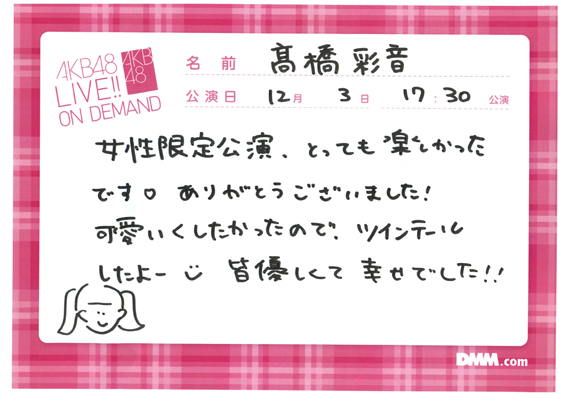 AKB48
LIVE!!
ON DEMAND
AKB
48
名前 髙橋彩音
公演日 12月 3日 17:30 公演
女性限定公演、とっても楽しかった
です♡ ありがとうございました!
可愛いくしたかったので、ツインテール
したよー 皆優しくて 幸せでした!!
DMM.com